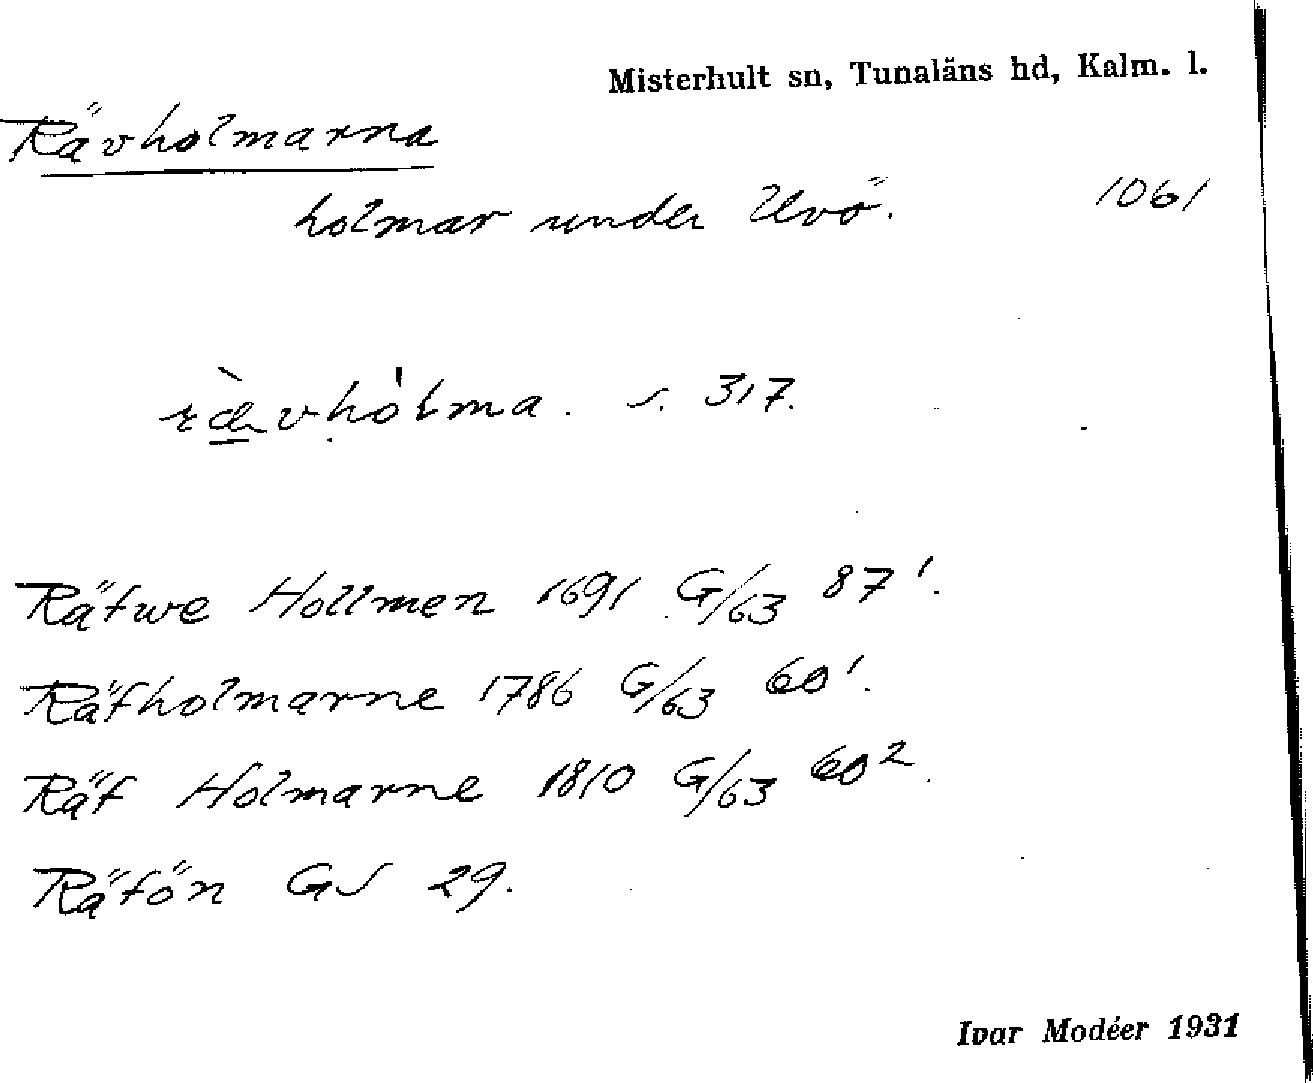 Misterhult sn, Tunaläns hd, Kalm. l.
Rävholmarna
holmar under Uvö. 1061
rævhòlma. s. 317.
Räfwe Hollmen 1691 G/63 87¹.
Räfholmarne 1786 G/63 60¹.
Räf Holmarne 1810 G/63 60².
Räfön GS 29.
Ivar Modéer 1931